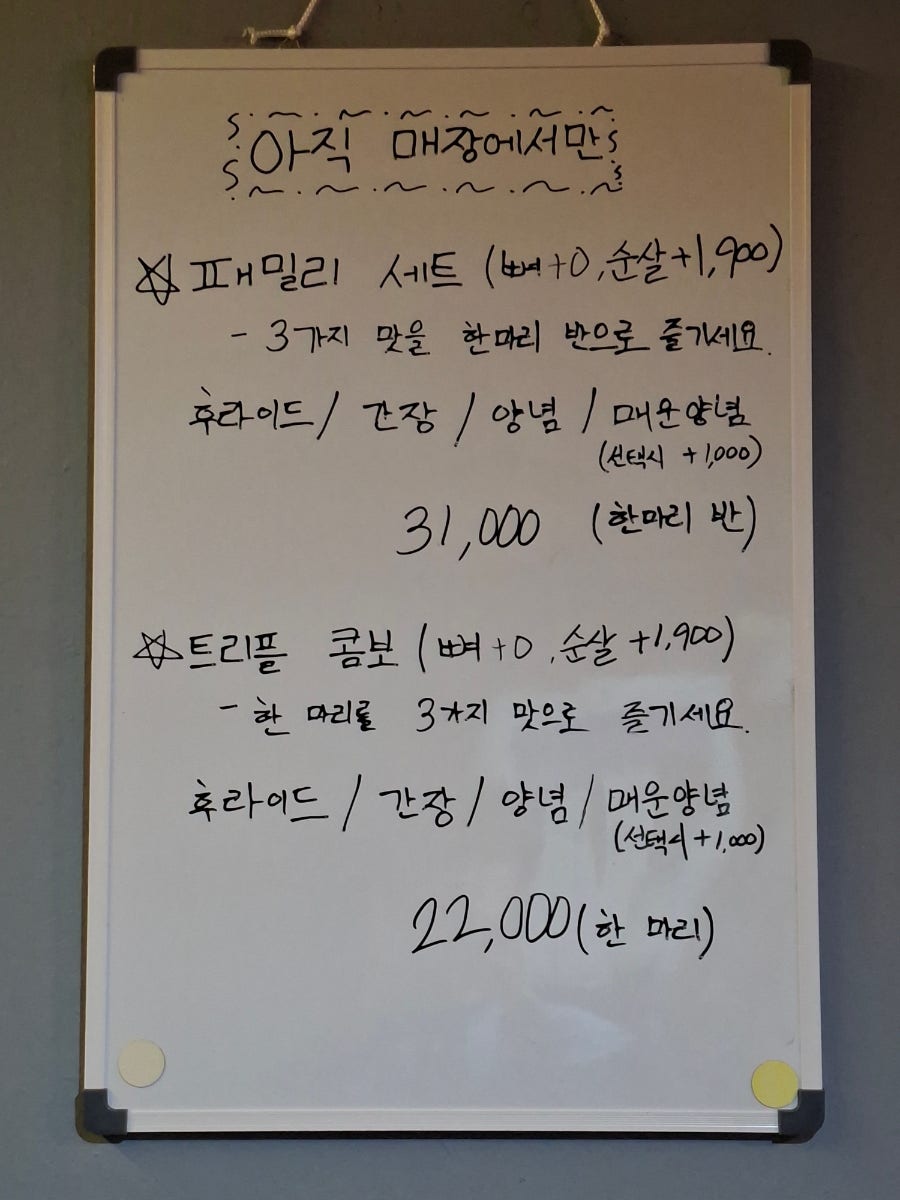 아직 매장에서만
☆ 패밀리 세트 (뼈+0, 순살+1,900)
- 3가지 맛을 한마리 반으로 즐기세요.
후라이드 / 간장 / 양념 / 매운양념
(선택시 +1,000)
31,000 (한마리 반)
☆ 트리플 콤보 (뼈+0, 순살+1,900)
- 한 마리를 3가지 맛으로 즐기세요.
후라이드 / 간장 / 양념 / 매운양념
(선택시 +1,000)
22,000 (한 마리)